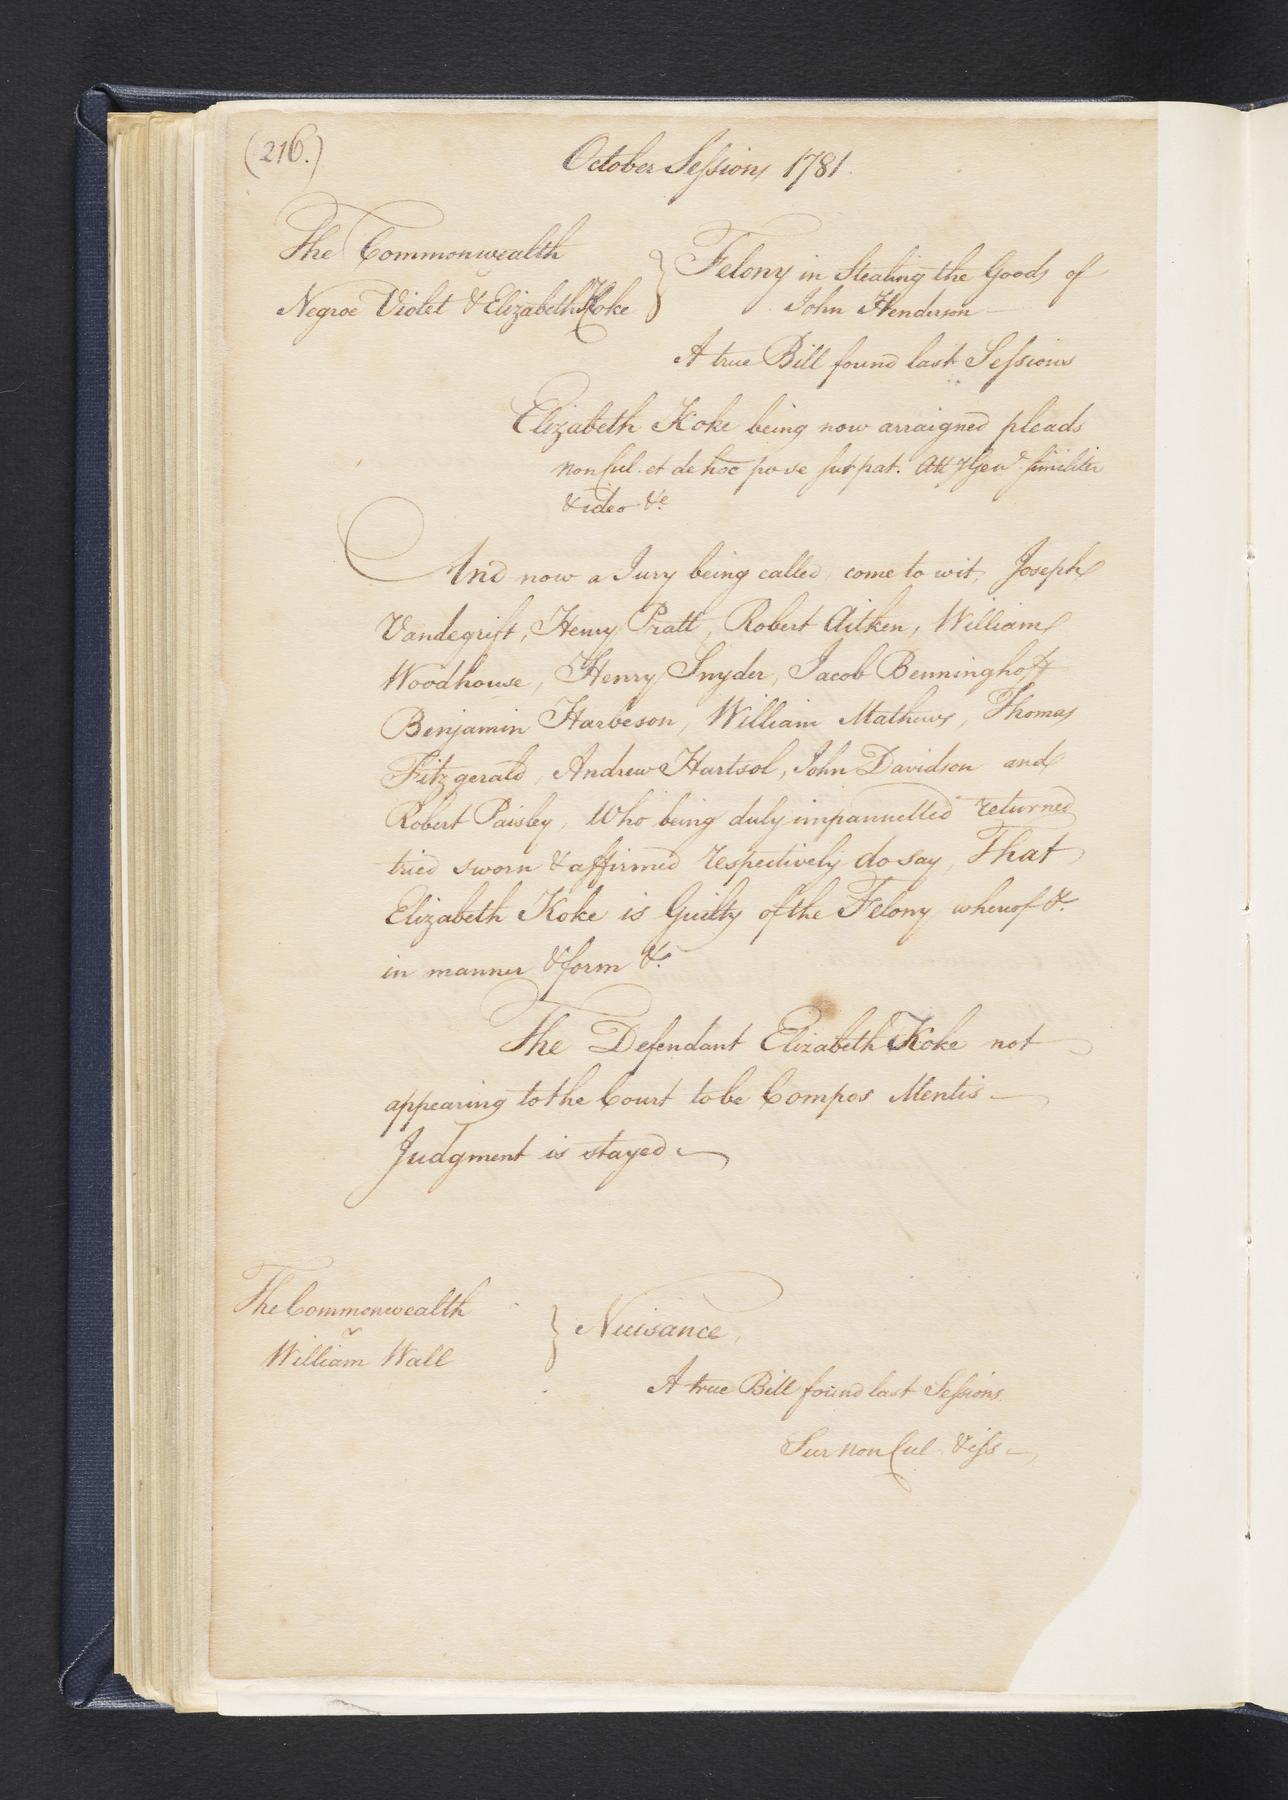 (216.)
October Sessions 1781.
The Commonwealth
v
Negroe Violet & Elizabeth Koke
} Felony in Stealing the Goods of
John Henderson
A true Bill found last Sessions
Elizabeth Koke being now arraigned pleads
non Cul. et de hoc po se sup pat. Att.y Gen.l similiter
& ideo &c.
And now a Jury being called, come to wit, Joseph
Vandegrift, Henry Pratt, Robert Aitken, William
Woodhouse, Henry Snyder, Jacob Benninghoff
Benjamin Harbeson, William Mathews, Thomas
Fitzgerald, Andrew Hartsol, John Davidson and
Robert Paisley, Who being duly impannelled returned
tried sworn & affirmed respectively do say, That
Elizabeth Koke is Guilty of the Felony whereof &c.
in manner & form &c.
The Defendant Elizabeth Koke not
appearing to the Court to be Compos Mentis —
Judgment is stayed —
The Commonwealth
v
William Wall
} Nuisance,
A true Bill found last Sessions.
Sur non Cul & iss —